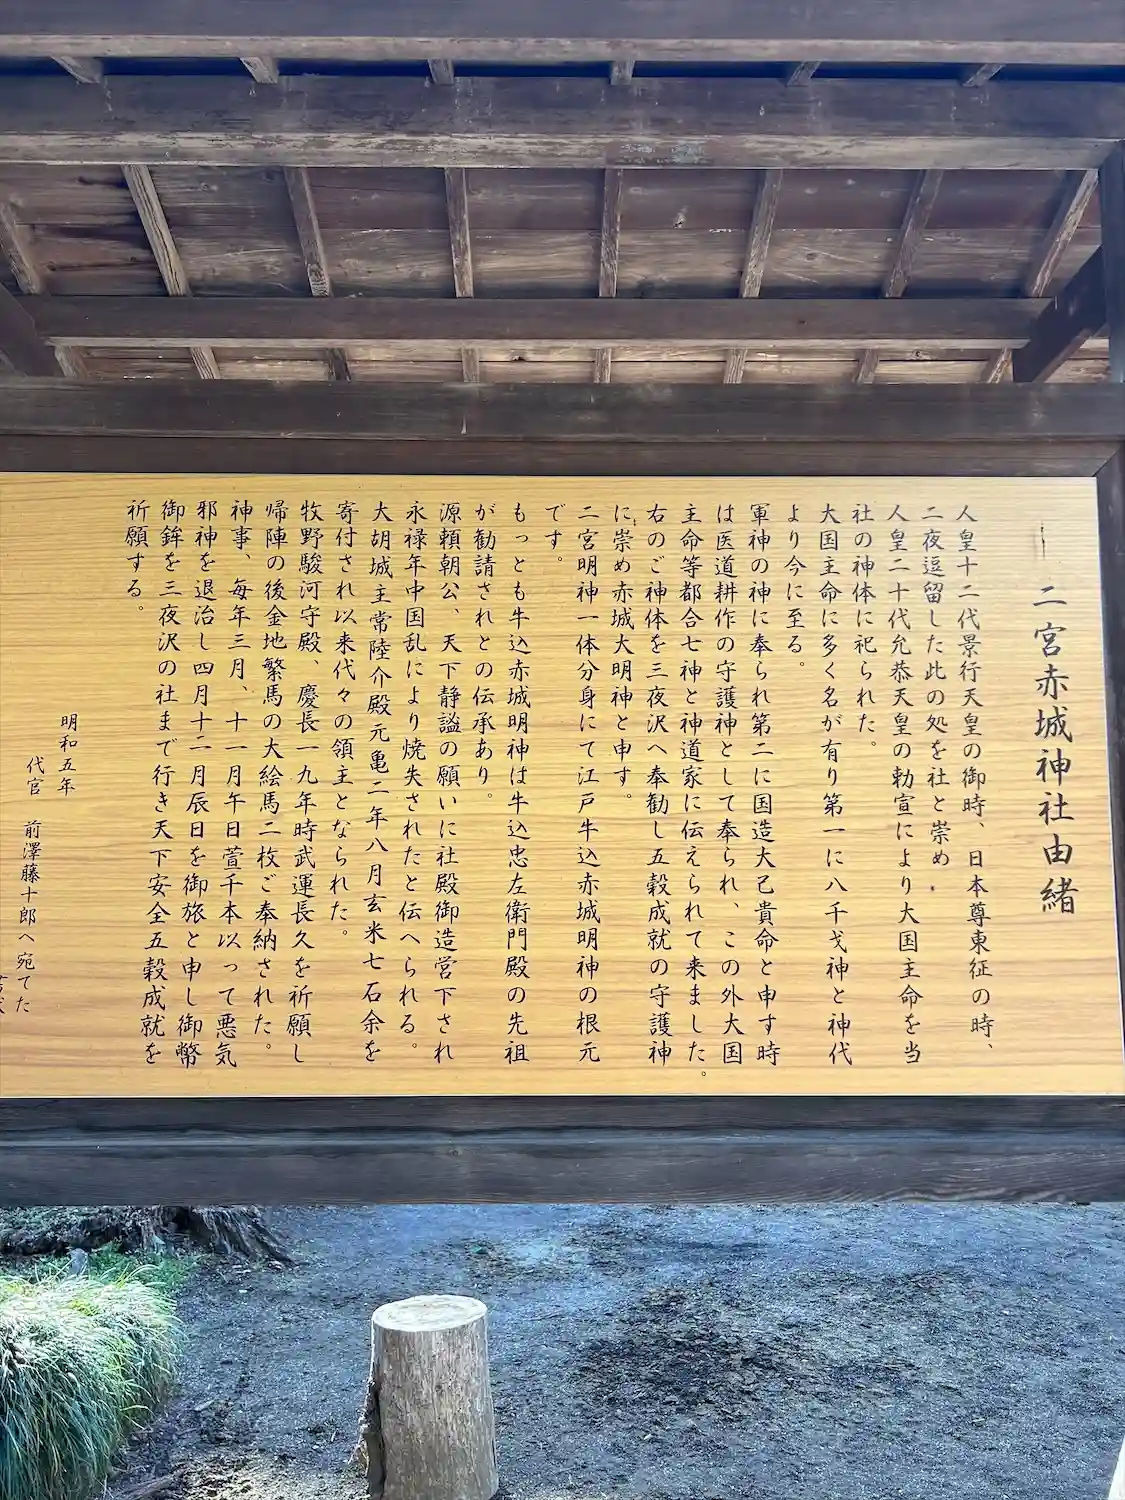 二宮赤城神社由緒
人皇十二代景行天皇の御時、日本尊東征の時、
二夜逗留した此の処を社と崇め
人皇二十代允恭天皇の勅宣により大国主命を当
社の神体に祀られた。
大国主命に多く名が有り第一に八千戈神と神代
より今に至る。
軍神の神に奉られ第二に国造大己貴命と申す時
は医道耕作の守護神として奉られ、この外大国
主命等都合七神と神道家に伝えられて来ました。
右のご神体を三夜沢へ奉勧し五穀成就の守護神
に崇め赤城大明神と申す。
二宮明神一体分身にて江戸牛込赤城明神の根元
です。
もっとも牛込赤城明神は牛込忠左衛門殿の先祖
が勧請されとの伝承あり。
源頼朝公、天下静謐の願いに社殿御造営下され
永禄年中国乱により焼失されたと伝へられる。
大胡城主常陸介殿元亀二年八月玄米七石余を
寄付され以来代々の領主となられた。
牧野駿河守殿、慶長一九年時武運長久を祈願し
帰陣の後金地繋馬の大絵馬二枚ご奉納された。
神事、毎年三月、十一月午日萱千本以って悪気
邪神を退治し四月十二月辰日を御旅と申し御幣
御鉾を三夜沢の社まで行き天下安全五穀成就を
祈願する。
明和五年
代官 前澤藤十郎へ宛てた